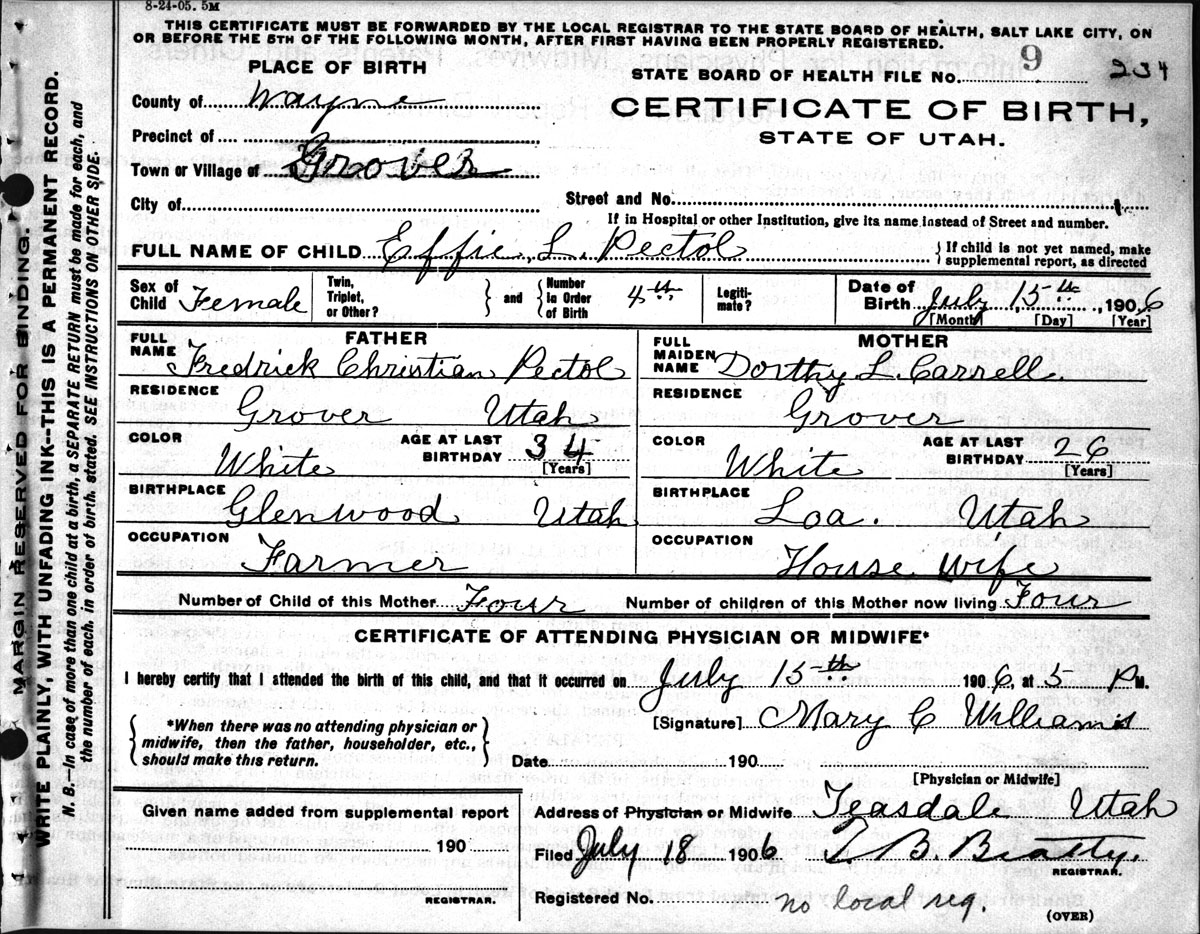 8-24-05. 5M
THIS CERTIFICATE MUST BE FORWARDED BY THE LOCAL REGISTRAR TO THE STATE BOARD OF HEALTH, SALT LAKE CITY, ON
OR BEFORE THE 5TH OF THE FOLLOWING MONTH, AFTER FIRST HAVING BEEN PROPERLY REGISTERED.
PLACE OF BIRTH
STATE BOARD OF HEALTH FILE No. 9 234
County of Wayne
CERTIFICATE OF BIRTH,
STATE OF UTAH.
Precinct of
Town or Village of Grover
City of
Street and No.
If in Hospital or other Institution, give its name instead of Street and number.
FULL NAME OF CHILD Effie L. Pectol
If child is not yet named, make
supplemental report, as directed
Sex of Child Female
Twin, Triplet, or Other?
and
Number in Order of Birth 4th
Legiti-mate?
Date of Birth July 15th, 1906
[Month] [Day] [Year]
FATHER
FULL NAME Fredrick Christian Pectol
RESIDENCE
Grover Utah
COLOR White
AGE AT LAST BIRTHDAY 34
[Years]
BIRTHPLACE
Glenwood Utah
OCCUPATION
Farmer
MOTHER
FULL MAIDEN NAME Dorthy L. Carrell.
RESIDENCE
Grover
COLOR White
AGE AT LAST BIRTHDAY 26
[Years]
BIRTHPLACE
Loa. Utah
OCCUPATION
House wife
Number of Child of this Mother Four Number of children of this Mother now living Four
CERTIFICATE OF ATTENDING PHYSICIAN OR MIDWIFE*
I hereby certify that I attended the birth of this child, and that it occurred on July 15th 1906, at 5 P M.
*When there was no attending physician or
midwife, then the father, householder, etc.,
should make this return.
[Signature] Mary C Williams
Date 190
[Physician or Midwife]
Given name added from supplemental report
190
REGISTRAR.
Address of Physician or Midwife Teasdale Utah
Filed July 18 1906 T. B. Beatty.
REGISTRAR.
Registered No. no local reg.
(OVER)
MARGIN RESERVED FOR BINDING.
WRITE PLAINLY, WITH UNFADING INK--THIS IS A PERMANENT RECORD.
N. B.--In case of more than one child at a birth, a SEPARATE RETURN must be made for each, and
the number of each, in order of birth, stated. SEE INSTRUCTIONS ON OTHER SIDE.